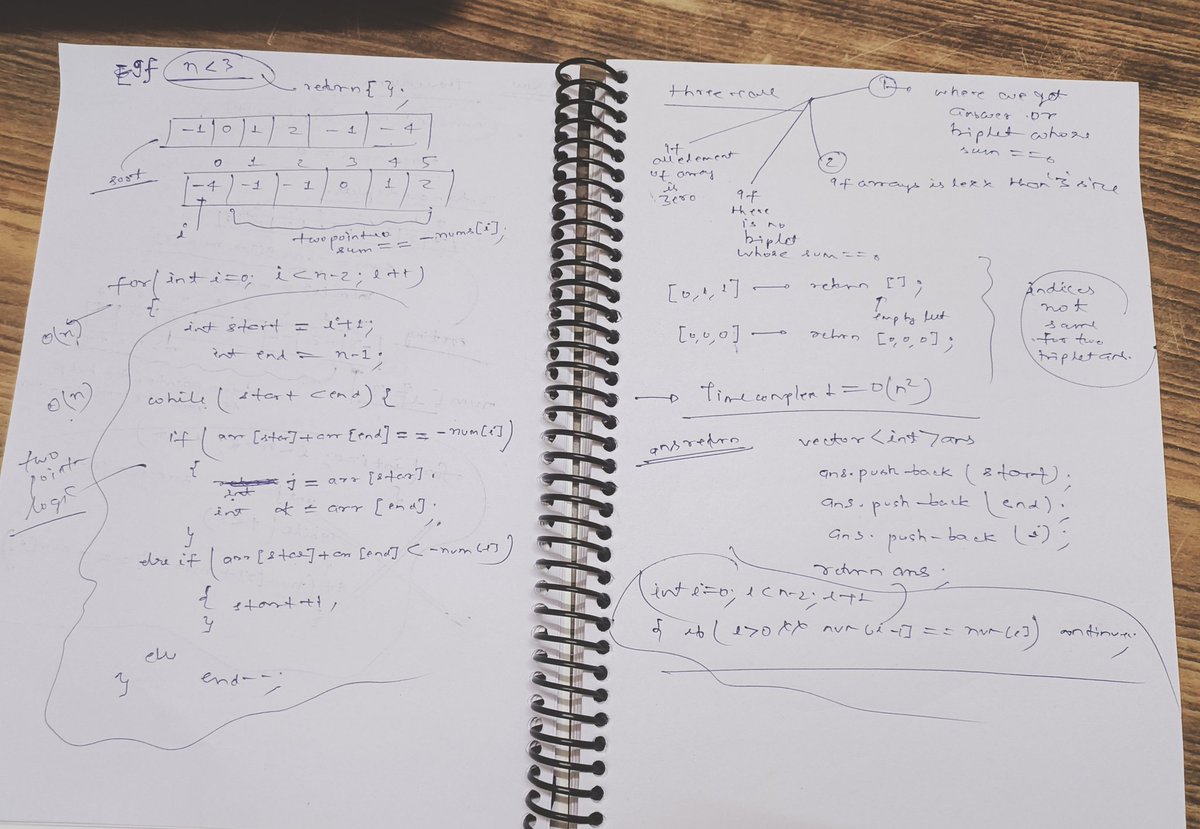 If n<3
return { };
-1 0 1 2 -1 -4
sort
0 1 2 3 4 5
-4 -1 -1 0 1 2
i
two pointer
sum == -nums[i];
for(int i=0; i<n-2; i++)
{
O(n)
int start = i+1;
int end = n-1;
O(n)
while( start < end) {
if (arr[star]+arr[end]== -num[i])
two
pointr
logic
{
int j = arr[star].
int k = arr[end];
}
else if (arr[star]+arr[end] < -num[i])
{ start++,
}
else
} end--;
three call
1
where we got
answer or
triplet whose
sum ==0
2
If arrays is less than '3' size
if
all element
of array
is
zero
If
there
is no
triplet
whose sum ==0
[0,1,1] → return [];
empty list
[0,0,0] → return [0,0,0];
indices
not
same
for two
triplet ans.
→ Time complexi = O(n²)
ans return
vector<int>ans
ans.push-back(start);
ans.push-back(end);
ans.push-back(i);
return ans;
int i=0; i<n-2; i++
{ if( i>0 && num[i-1]==num[i]) continue;